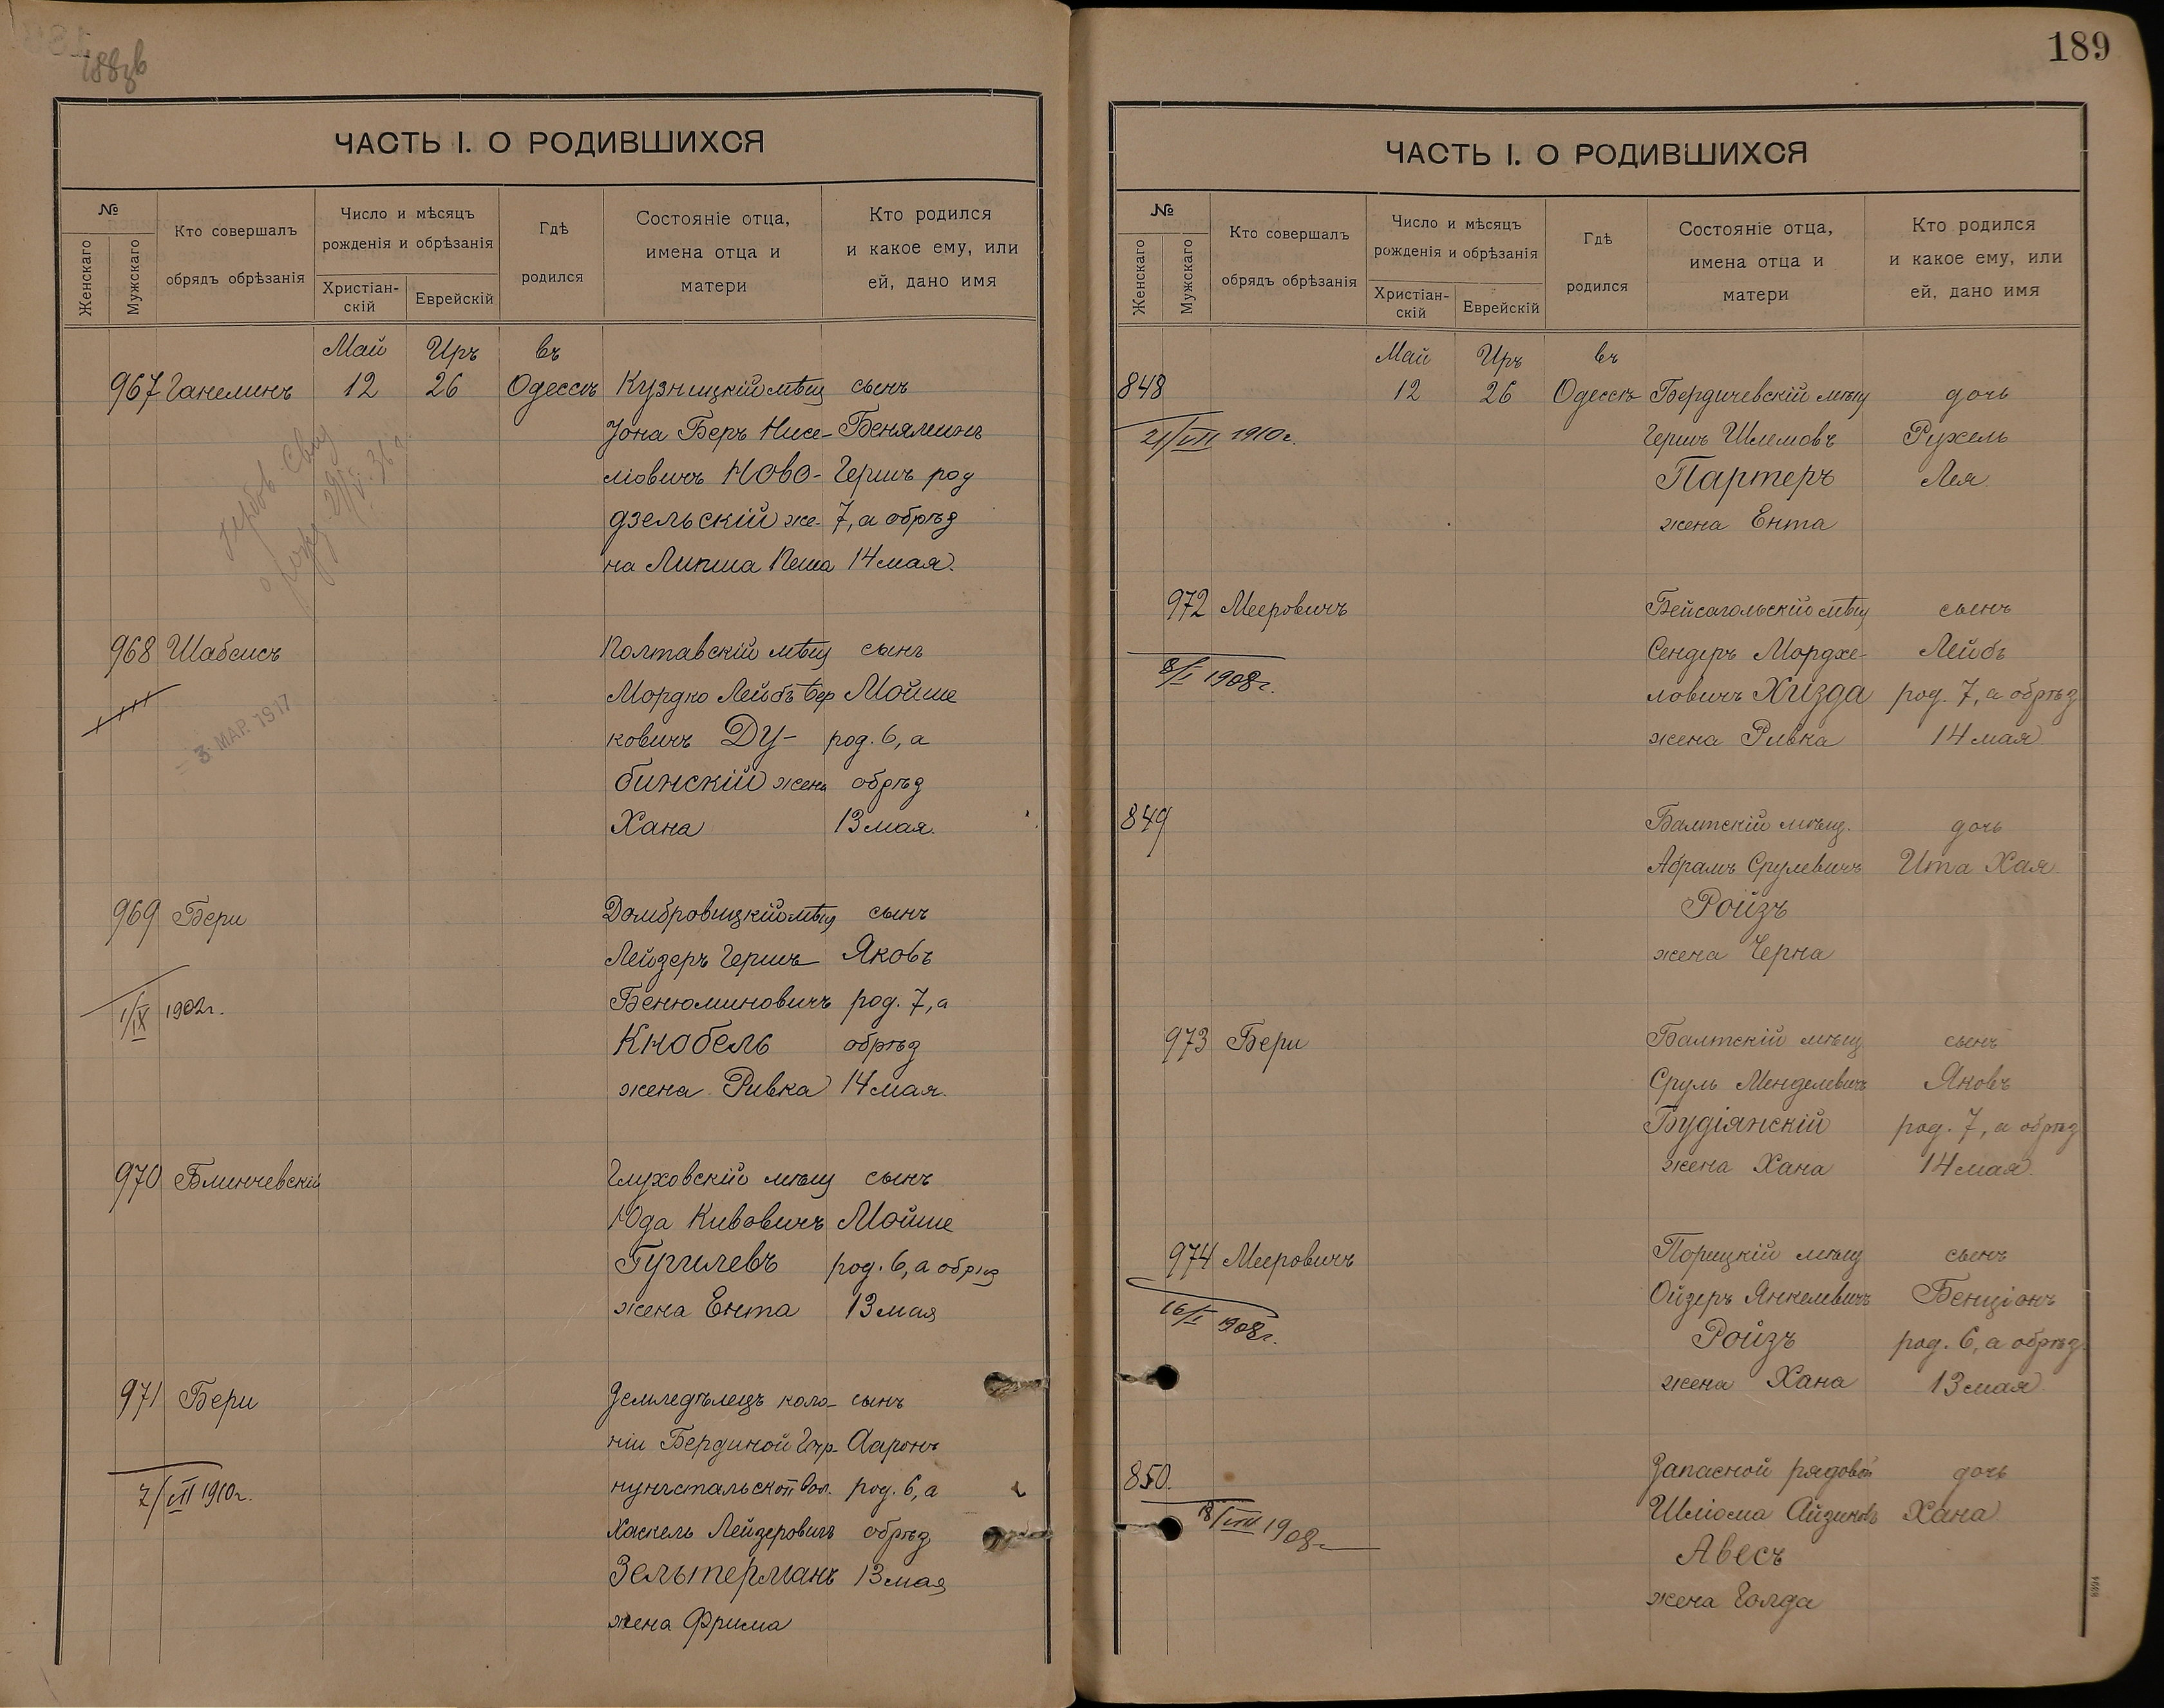 188зв
ЧАСТЬ I. О РОДИВШИХСЯ
№
Женскаго
Мужскаго
Кто совершалъ
обрядъ обрѣзанія
Число и мѣсяцъ
рожденія и обрѣзанія
Христіан-
скій
Еврейскій
Гдѣ
родился
Состояніе отца,
имена отца и
матери
Кто родился
и какое ему, или
ей, дано имя
Май Иръ въ
967 Ганелинъ 12 26 Одессѣ Кузницкій мѣщ сынъ
Іона Беръ Нисе- Беняминъ
ліовичъ Ново- Гершъ род
дзельскій же- 7, а обрѣз
на Липша Пеша 14 мая.
968 Шабсисъ Полтавскій мѣщ сынъ
Мордко Лейбъ Бер Мойше
ковичъ Ду- род. 6, а
бинскій жена обрѣз
Хана 13 мая.
3. МАР. 1917
969 Бери Домбровицкій мѣщ сынъ
Лейзеръ Гершъ Яковъ
Бенюминовичъ род. 7, а
1/IX 1902г.
Кнобель обрѣз
жена Ривка 14 мая.
970 Блинчевскій Глуховскій мѣщ сынъ
Юда Кивовичъ Мойше
Гугилевъ род. 6, а обрѣз
жена Ента 13 мая
971 Бери Земледѣлецъ коло- сынъ
ніи Бердиной Ааронъ
7/VII 1910г.
вол. род. 6, а
Хаскель Лейзеровичъ обрѣз
Зельтерманъ 13 мая
жена Фрима
189
ЧАСТЬ I. О РОДИВШИХСЯ
№
Женскаго
Мужскаго
Кто совершалъ
обрядъ обрѣзанія
Число и мѣсяцъ
рожденія и обрѣзанія
Христіан-
скій
Еврейскій
Гдѣ
родился
Состояніе отца,
имена отца и
матери
Кто родился
и какое ему, или
ей, дано имя
Май Иръ въ
848 12 26 Одессѣ Бердичевскій мѣщ дочь
21/VII 1910г. Гершъ Шлемовъ Рухель
Партеръ Лея
жена Ента
972 Мееровичъ Бейсагольскій мѣщ сынъ
Сендеръ Мордхе- Лейбъ
8/I 1908г. ловичъ Хизда род. 7, а обрѣз
жена Ривка 14 мая
849 Балтскій мѣщ. дочь
Абрамъ Срулевичъ Ита Хая
Ройзъ
жена Черна
973 Бери Балтскій мѣщ сынъ
Сруль Менделевичъ Яковъ
Будіянскій род. 7, а обрѣз
жена Хана 14 мая.
974 Мееровичъ Порицкій мѣщ сынъ
Ойзеръ Янкелевичъ Бенціонъ
16/I 1908г. Ройзъ род. 6, а обрѣз.
жена Хана 13 мая
850. Запасной рядовой дочь
18/VIII 1908г Шліома Айзиковъ Хана
Авесъ
жена Голда